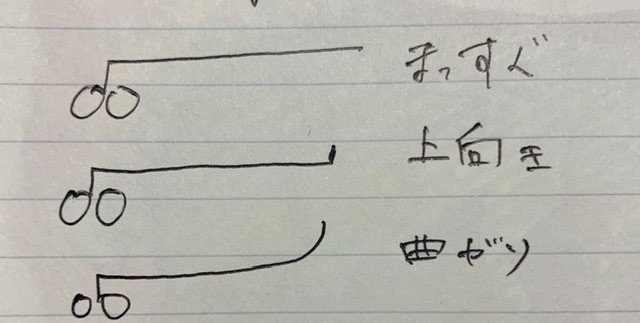 まっすぐ
上向き
曲がり